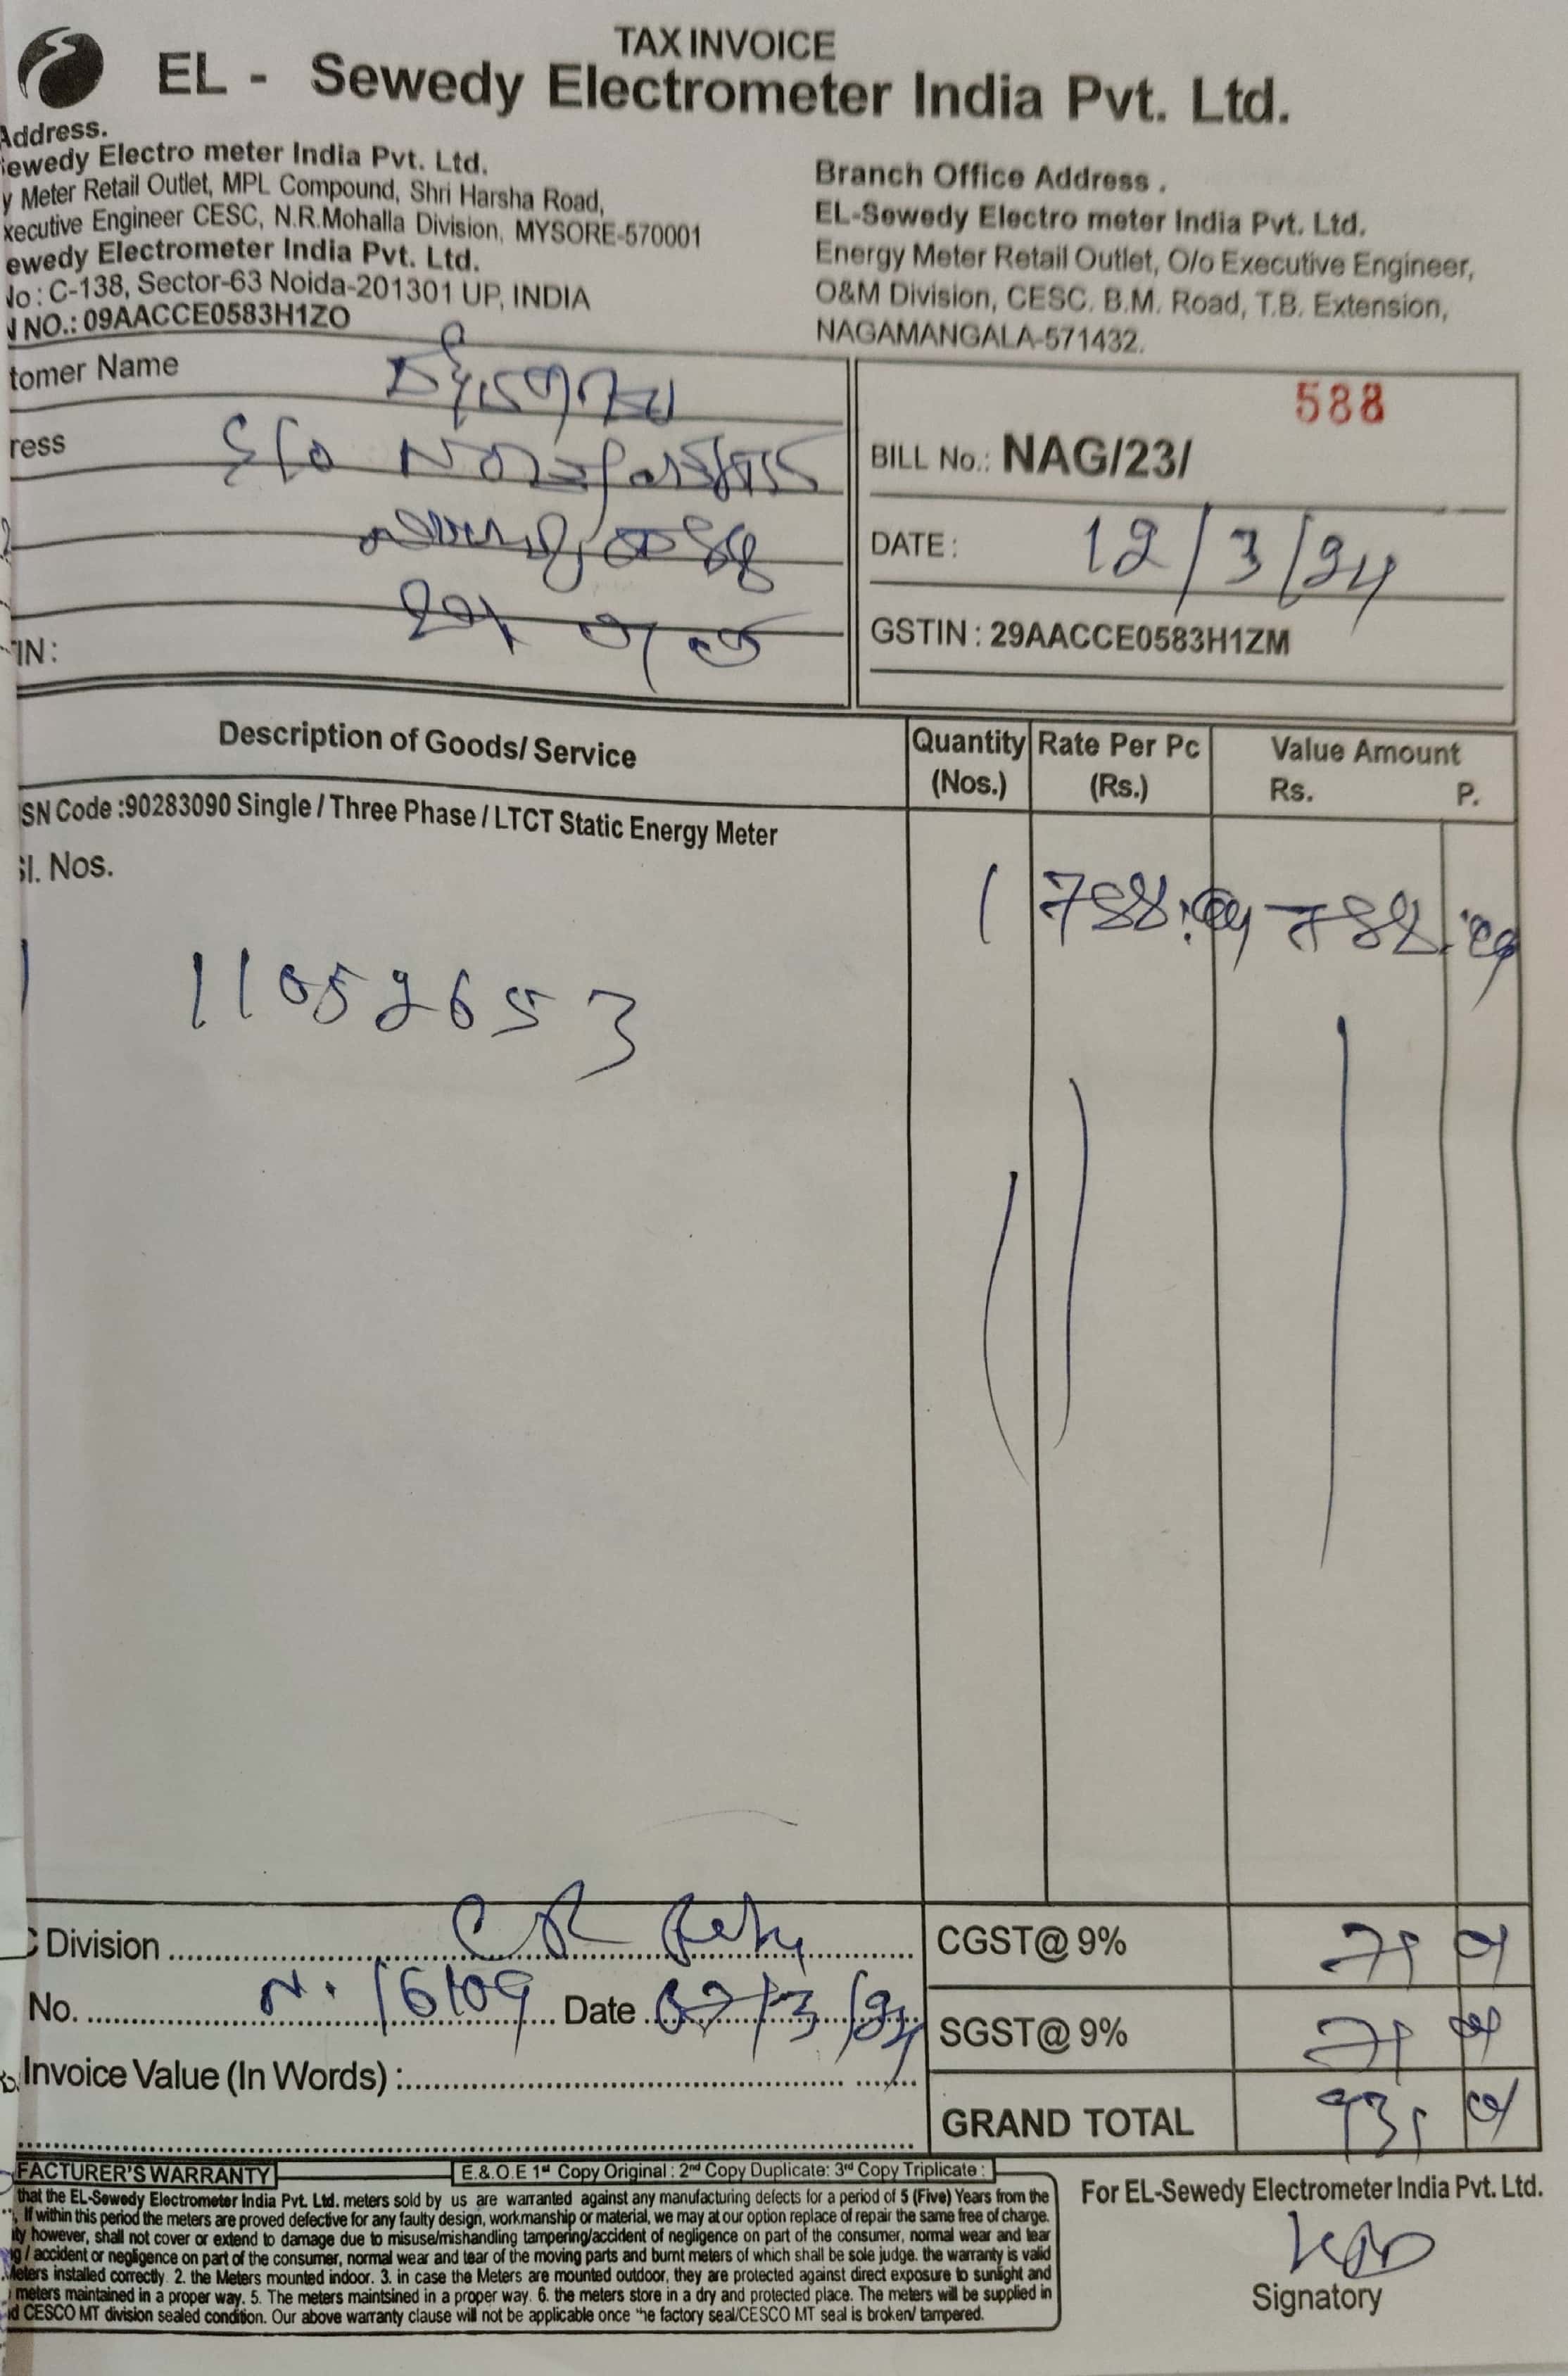 TAX INVOICE
EL - Sewedy Electrometer India Pvt. Ltd.
Address.
ewedy Electro meter India Pvt. Ltd.
y Meter Retail Outlet, MPL Compound, Shri Harsha Road,
xecutive Engineer CESC, N.R.Mohalla Division, MYSORE-570001
ewedy Electrometer India Pvt. Ltd.
No : C-138, Sector-63 Noida-201301 UP, INDIA
N NO.: 09AACCE0583H1ZO
Branch Office Address .
EL-Sewedy Electro meter India Pvt. Ltd.
Energy Meter Retail Outlet, O/o Executive Engineer,
O&M Division, CESC. B.M. Road, T.B. Extension,
NAGAMANGALA-571432.
tomer Name
ress S/o
IN :
588
BILL No.: NAG/23/
DATE : 12/3/24
GSTIN : 29AACCE0583H1ZM
Description of Goods/ Service Quantity (Nos.) Rate Per Pc (Rs.) Value Amount Rs. P.
SN Code :90283090 Single / Three Phase / LTCT Static Energy Meter
Sl. Nos.
1 788. 788.
1 11052653
C Division
No. 16109 Date 07/3/24
Invoice Value (In Words) :
CGST@ 9% 71
SGST@ 9% 71
GRAND TOTAL 931
FACTURER'S WARRANTY
E.&.O.E 1st Copy Original : 2nd Copy Duplicate: 3rd Copy Triplicate :
that the EL-Sewedy Electrometer India Pvt. Ltd. meters sold by us are warranted against any manufacturing defects for a period of 5 (Five) Years from the
If within this period the meters are proved defective for any faulty design, workmanship or material, we may at our option replace of repair the same free of charge.
ity however, shall not cover or extend to damage due to misuse/mishandling tampering/accident of negligence on part of the consumer, normal wear and tear
ng / accident or negligence on part of the consumer, normal wear and tear of the moving parts and burnt meters of which shall be sole judge. the warranty is valid
Meters installed correctly. 2. the Meters mounted indoor. 3. in case the Meters are mounted outdoor, they are protected against direct exposure to sunlight and
meters maintained in a proper way. 5. The meters maintsined in a proper way. 6. the meters store in a dry and protected place. The meters will be supplied in
d CESCO MT division sealed condition. Our above warranty clause will not be applicable once the factory seal/CESCO MT seal is broken/ tampered.
For EL-Sewedy Electrometer India Pvt. Ltd.
Signatory